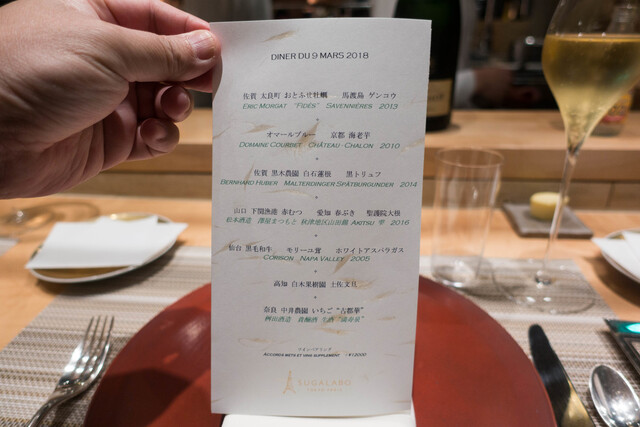 DINER DU 9 MARS 2018
佐賀 太良町 おとふせ牡蠣 馬渡島 ゲンコウ
ERIC MORGAT "FIDÈS" SAVENNIÈRES 2013
オマールブルー 京都 海老芋
DOMAINE COURBET - CHÂTEAU-CHALON 2010
佐賀 黒木農園 白石蓮根 黒トリュフ
BERNHARD HUBER MALTERDINGER SPÄTBURGUNDER 2014
山口 下関漁港 赤むつ 愛知 春ぶき 聖護院大根
松本酒造 澤屋まつもと 秋津地区山田錦 AKITSU 雫 2016
仙台 黒毛和牛 モリーユ茸 ホワイトアスパラガス
CORISON NAPA VALLEY 2005
高知 白木果樹園 土佐文旦
奈良 中井農園 いちご "古都華"
酒 生酒
ワインペアリング
ACCORDS METS ET VINS SUPPLEMENT
SUGALABO